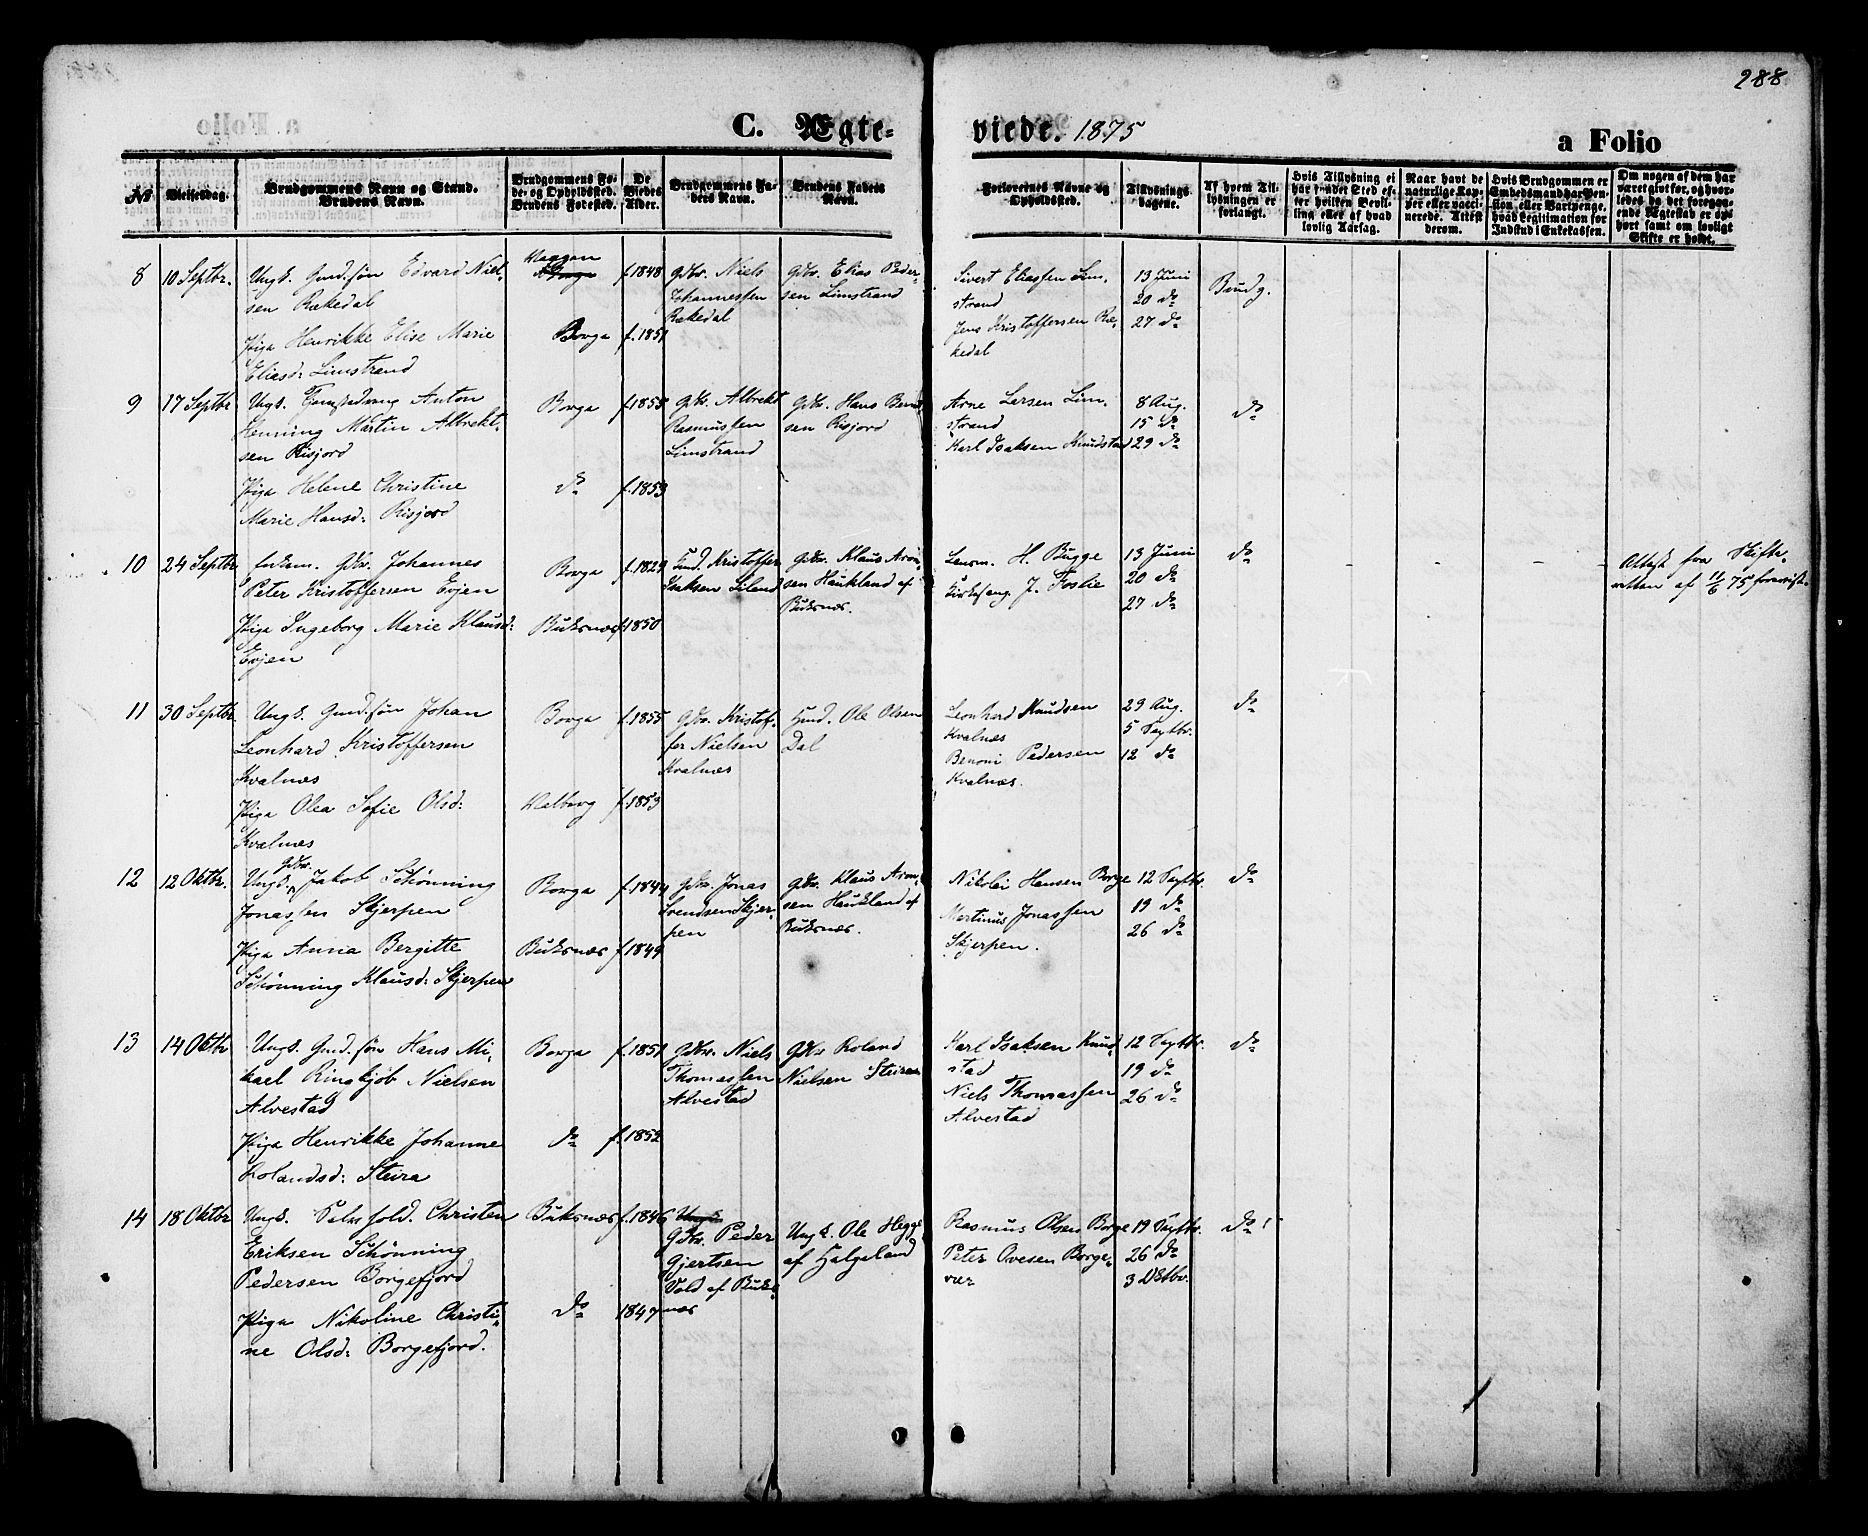 288
C. Ægte-
viede. 1875
a Folio
No
Vielsesdag.
Brudgommens Navn og Stand.
Brudens Navn.
Brudgommens Fø-
de- og Opholdssted.
Brudens Fødested.
De
Viedes
Alder.
Brudgommens Fa-
ders Navn.
Brudens Faders
Navn.
Forlovernes Navne og
Opholdssted.
Tillysnings-
dagene.
Af hvem Til-
lysningen er
forlangt.
Hvis Tillysning ei
har fundet Sted ef-
ter hvilken Bevil-
ling eller af hvad
lovlig Aarsag.
Naar havt de
naturlige Kop-
per eller vacci-
nerede. Attest
derom.
Hvis Brudgommen er
Embedsmand har Pen-
sion eller Vartpenge,
hvad Legitimation for
Indskud i Enkekassen.
Om nogen af dem har
været givt før, og hvor-
ledes da det foregaa-
ende Ægteskab er op-
hørt samt om lovligt
Skifte er holdt.
8
10 Septbr.
Ungk. Gmd.søn Edvard Niel-
sen Rækedal
Pige Henrikke Elise Marie
Eliasd: Limstrand
Borge
f. 1848
f. 1851
Gdbr. Niels
Johannessen
Rækedal
Gdbr. Elias Peder-
sen Limstrand
Sivert Eliassen Lim-
strand
Jens Kristoffersen Ræ-
kedal
13 Juni
20 do
27 do
Brudg.
9
17 Septbr
Ungk. Anton
Henning Martin Albrekt-
sen Risjord
Pige Helene Christine
Marie Hansd: Risjord
Borge
do
f. 1855
f. 1853
Gdbr. Albrekt
Rasmussen
Limstrand
Gdbr. Hans Bernt-
sen Risjord
Arne Larsen Lim-
strand
Karl Isaksen Knudstad
8 Aug.
15 do
29 do
do
10
24 Septbr
Enkem. Gdbr. Johannes
Peter Kristoffersen Evjen
Pige Ingeborg Marie Klausd:
Evjen
Borge
Buksnæs
f. 1829
f. 1850
Kristoffer
Isaksen Liland
Gdbr. Klaus Aron-
sen Haukland af
Buksnæs.
Lensm. H. Bugge
Kirkesang. J. Foslie
13 Juni
20 do
27 do
do
Attest fra Skifte-
retten af 11/6 75 forevist
11
30 Septbr
Ungk. Gmd.søn Johan
Leonhard Kristoffersen
Kvalnæs
Pige Olea Sofie Olsd:
Kvalnæs
Borge
f. 1855
f. 1853
Gdbr. Kristof-
fer Nielsen
Kvalnæs
Hmd. Ole Olsen
Dal
Leonhard Knudsen
Kvalnæs
Benoni Pedersen
Kvalnæs.
29 Aug.
5 Septbr.
12 do
do
12
12 Oktbr.
Ungk. Gdbr. Jakob Schønning
Jonassen Skjerpen
Pige Anna Bergitte
Schønning Klausd: Skjerpen
Borge
Buksnæs
f. 1844
f. 1849
Gdbr. Jonas
Svendsen Skjer-
pen
Gdbr. Klaus Aron-
sen Haukland af
Buksnæs.
Nikolai Hansen Borge
Martinus Jonassen
Skjerpen.
12 Septbr.
19 do
26 do
do
13
14 Oktbr
Ungk. Gmd. søn Hans Mi-
kael Ringkjøb Nielsen
Alvestad
Pige Henrikke Johanne
Rolandsd: Steira
Borge
do
f. 1851
f. 1852
Gdbr. Niels
Thomassen
Alvestad
Gdbr Roland
Nielsen Steira
Karl Isaksen Knud-
stad
Niels Thomassen
Alvestad
12 Septbr.
19 do
26 do
do
14
18 Oktbr
Ungk. Christen
Eriksen Schønning
Pedersen Borgefjord
Pige Nikoline Christi-
ne Olsd: Borgefjord.
Buksnæs
do
f. 1846
1847
Gdbr. Peder
Gjertsen
Vold af Buks-
næs
Ungk. Ole Hegge
af Helgeland
Rasmus Olsen Borge
Peter Ovesen Borge-
vær
19 Septbr.
26 do
3 Oktbr.
do